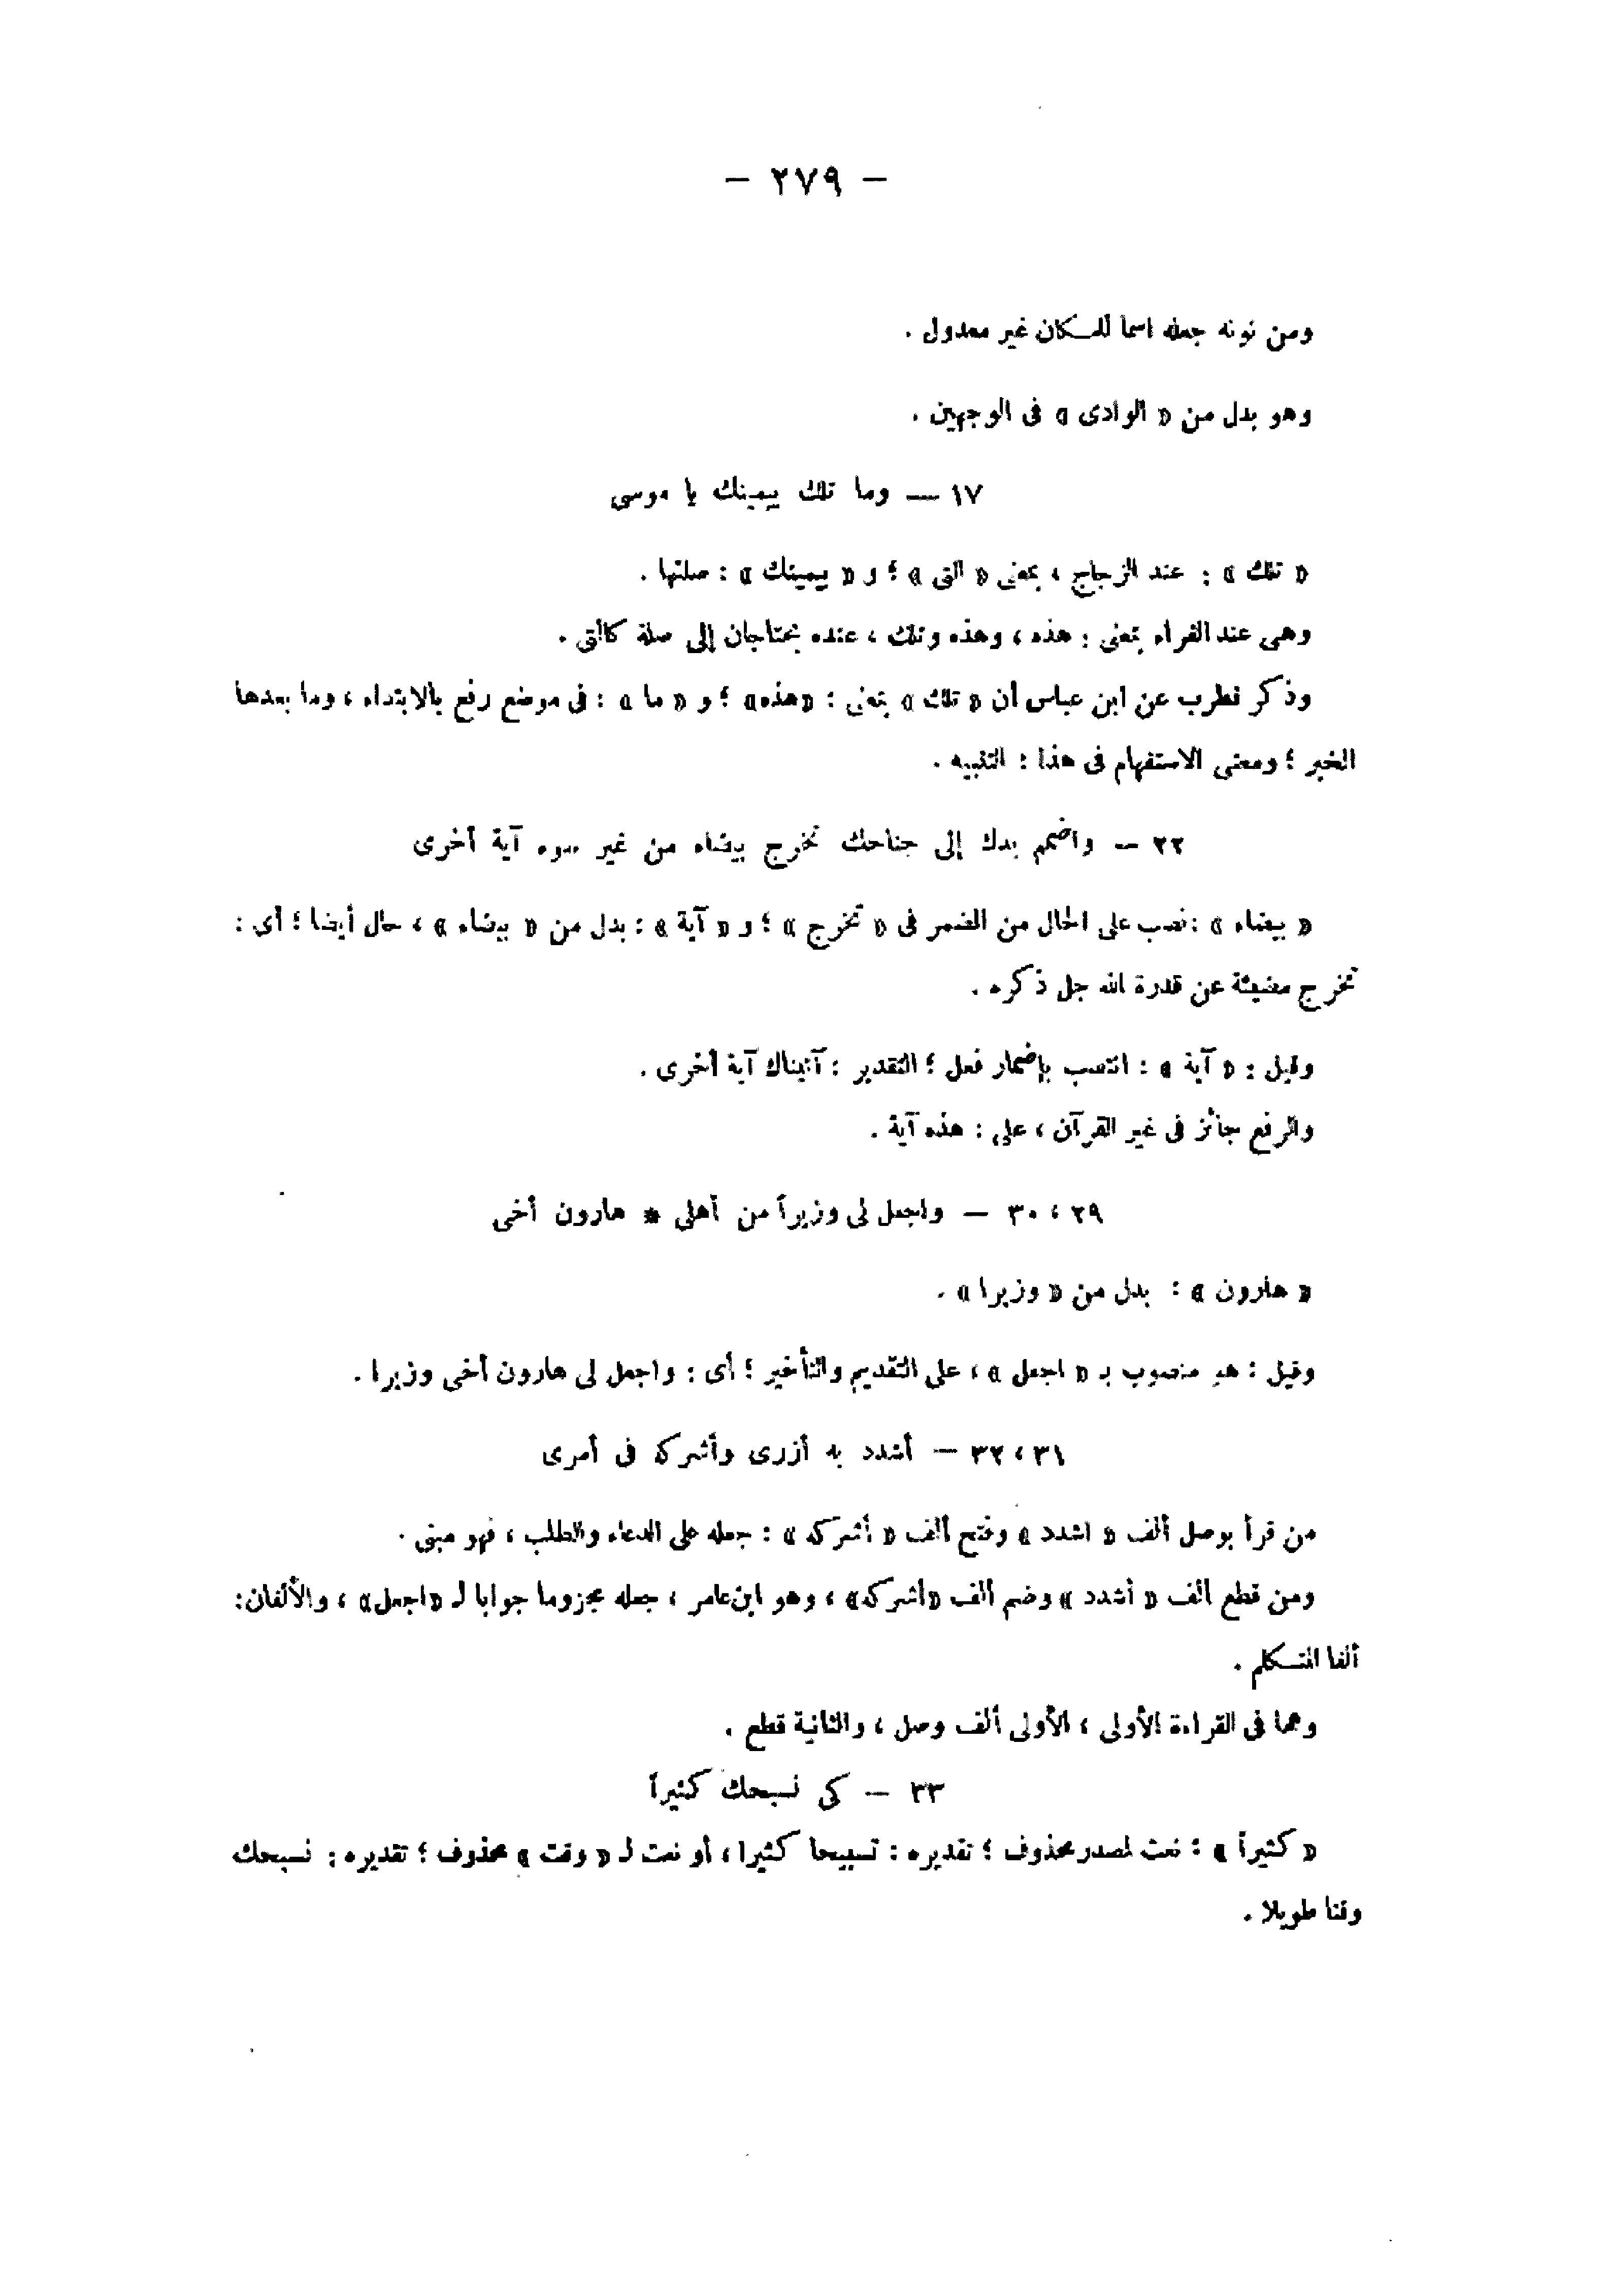 — ٢٧٩ —
ومن نونه جعله اسما للمكان غير معدول .
وهو بدل من « الوادى » فى الوجهين .
١٧ — وما تلك بيمينك يا موسى
« تلك » : عند الزجاج ، بمعنى « التى » ؛ و « بيمينك » : صلتها .
وهى عند الفراء بمعنى : هذه ، وهذه وتلك ، عنده يحتاجان إلى صلة كالتى .
وذكر قطرب عن ابن عباس أن « تلك » بمعنى : «هذه» ؛ و « ما » : فى موضع رفع بالابتداء ، وما بعدها
الخبر ؛ ومعنى الاستفهام فى هذا : التنبيه .
٢٢ — واضمم يدك إلى جناحك تخرج بيضاء من غير سوء آية أخرى
« بيضاء » : نصب على الحال من الضمر فى « تخرج » ؛ و « آية » : بدل من « بيضاء » ، حال أيضا ؛ أى :
تخرج مضيئة عن قدرة الله جل ذكره .
وقيل : « آية » : انتصب بإضمار فعل ؛ التقدير : آتيناك آية أخرى .
والرفع جائز فى غير القرآن ، على : هذه آية .
٢٩ ، ٣٠ — واجعل لى وزيراً من أهلى * هارون أخى
« هارون » : بدل من « وزيرا » .
وقيل : هو منصوب بـ « اجعل » ، على التقديم والتأخير ؛ أى : واجعل لى هارون أخى وزيرا .
٣١ ، ٣٢ — أشدد به أزرى وأشركه فى أمرى
من قرأ بوصل ألف « اشدد » وفتح ألف « أشركه » : جعله على الدعاء والطلب ، فهو مبنى .
ومن قطع ألف « أشدد » وضم ألف «أشركه» ، وهو ابن عامر ، جعله مجزوما جوابا لـ «اجعل» ، والألفان:
ألفا المتكلم .
وهما فى القراءة الأولى ، الأولى ألف وصل ، والثانية قطع .
٣٣ — كى نسبحك كثيراً
« كثيراً » : نعت لمصدر محذوف ؛ تقديره : تسبيحا كثيرا ، أو نعت لـ « وقت » محذوف ؛ تقديره : نسبحك
وقتا طويلا .